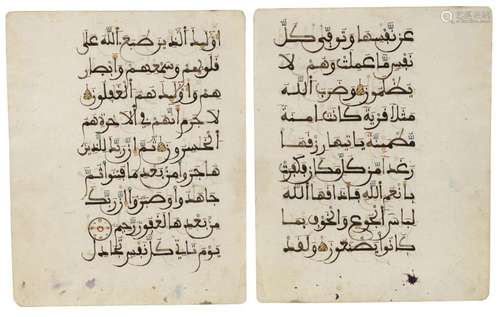 أوليك الذين طبع الله على
قلوبهم وسمعهم وأبصر
هم وأوليك هم الغفلون
لا جرم أنهم في الأخرة هم
الخسرون ثم إن ربك للذين
هاجروا من بعد ما فتنوا ثم
جاهدوا وصبروا إن ربك
من بعدها لغفور رحيم
يوم تاتي كل نفس تجادل
عن نفسها وتوفى كل
نفس ما عملت وهم لا
يظلمون وضرب الله
مثلا قرية كانت امنة
مطمينة ياتيها رزقها
رغدا من كل مكان فكفرت
بأنعم الله فأذاقها الله
لباس الجوع والخوف بما
كانوا يصنعون ولقد